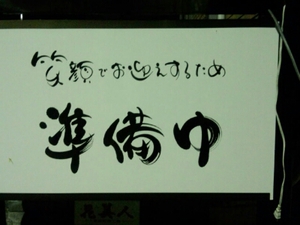 笑顔でお迎えするため
準備中